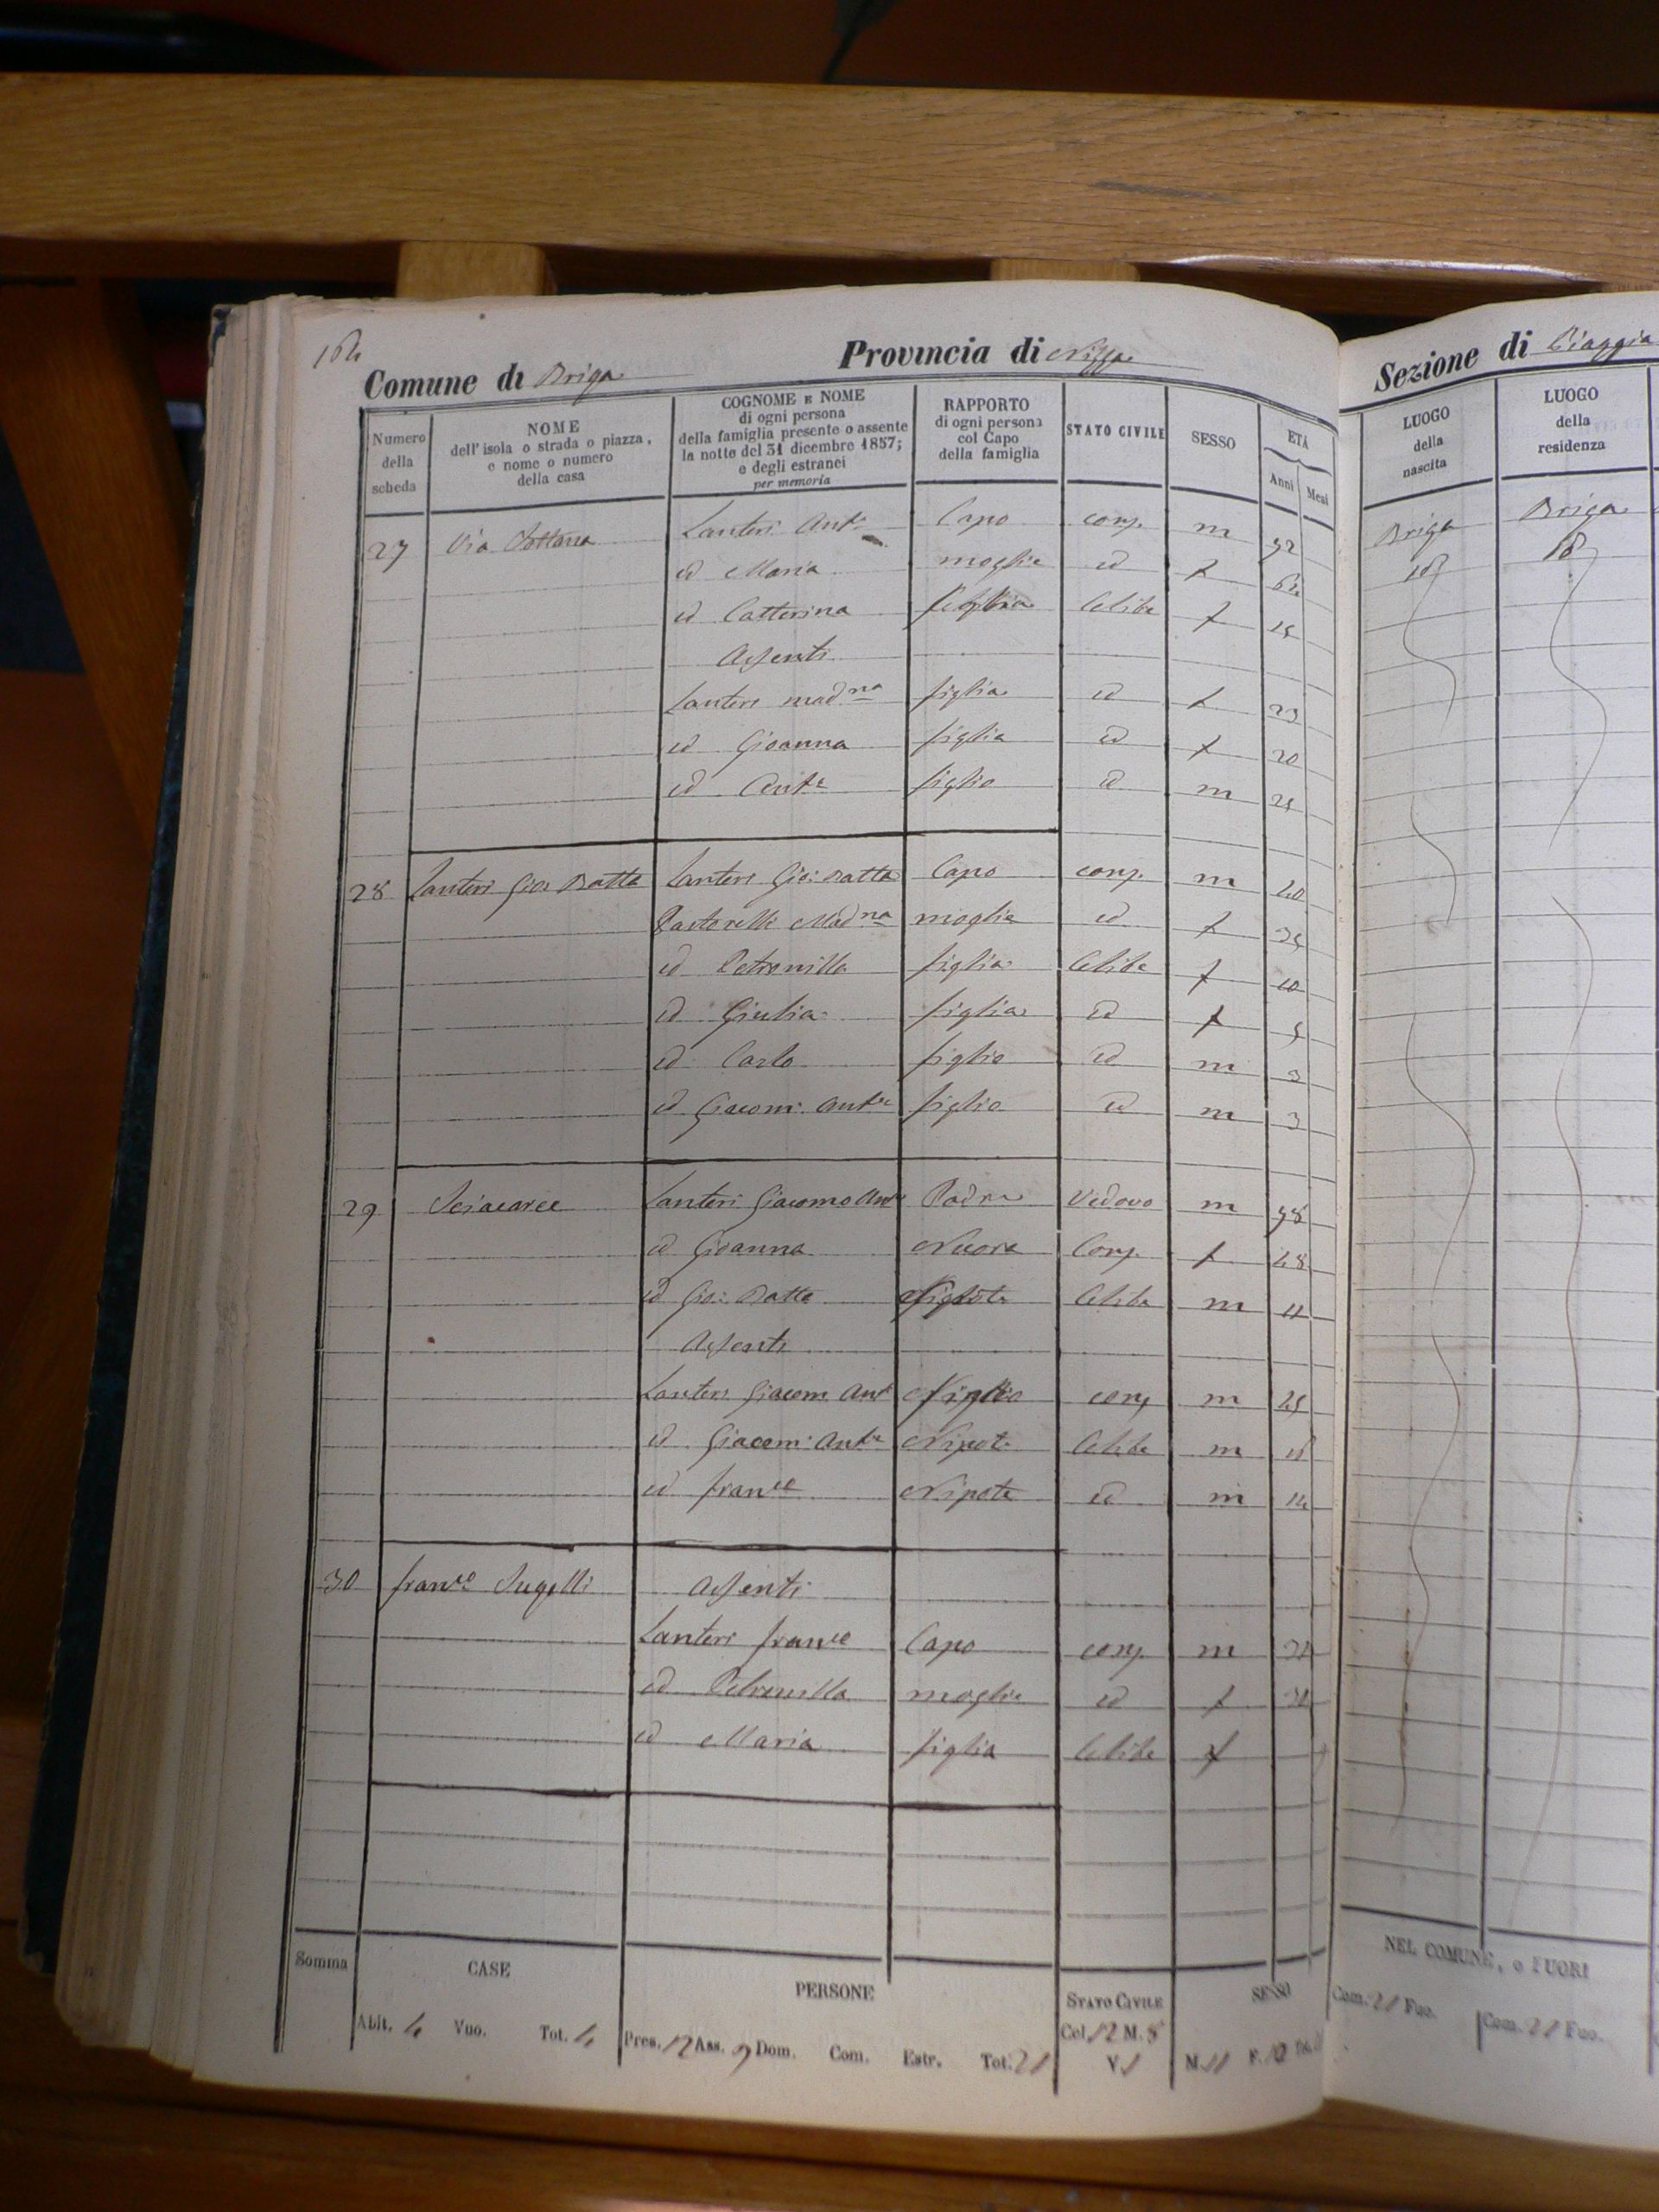 164
Comune di Briga
Provincia di Nizza
Sezione di Piaggia
Numero della scheda
NOME dell'isola o strada o piazza, e nome o numero della casa
COGNOME E NOME di ogni persona della famiglia presente o assente la notte del 31 dicembre 1857; e degli estranei per memoria
RAPPORTO di ogni persona col Capo della famiglia
STATO CIVILE
SESSO
ETÀ
Anni Mesi
LUOGO della nascita
LUOGO della residenza
27 Via Sottana Lanteri Ant.o Capo conj. m Briga Briga
id Maria moglie id f id id
id Catterina figlia Celibe f 15
Assenti
Lanteri Mad.na figlia id f 23
id Gioanna figlia id f 20
id Ant.o figlio id m
28 Lanteri Gio: Batta Lanteri Gio: Batta Capo conj. m 40
Pastorelli Mad.na moglie id f 35
id Petronilla figlia Celibe f 10
id Giulia figlia id f 5
id Carlo figlio id m 3
id Giacom: Ant.o figlio id m 3
29 Lanteri Giacomo Ant.o Padre Vedovo m
id Gioanna Nuora Conj. f 48
id Gio: Batta Nipote Celibe m 11
Assenti
Lanteri Giacom Ant.o figlio conj m
id Giacom: Ant.o Nipote Celibe m
id Fran.co Nipote id m 14
30 Fran.co Sugelli Assenti
Lanteri Fran.co Capo conj. m
id Petronilla moglie id f
id Maria figlia Celibe f
Somma
CASE
PERSONE
STATO CIVILE
SESSO
NEL COMUNE, o FUORI
Abit. 4 Vuo. Tot. 4 Pres. 12 Ass. 9 Dom. Com. Estr. Tot. 21 Cel. 12 M. 8 V. 1 M. 11 F. 10 Com. 21 Fuo. Com. 21 Fuo.